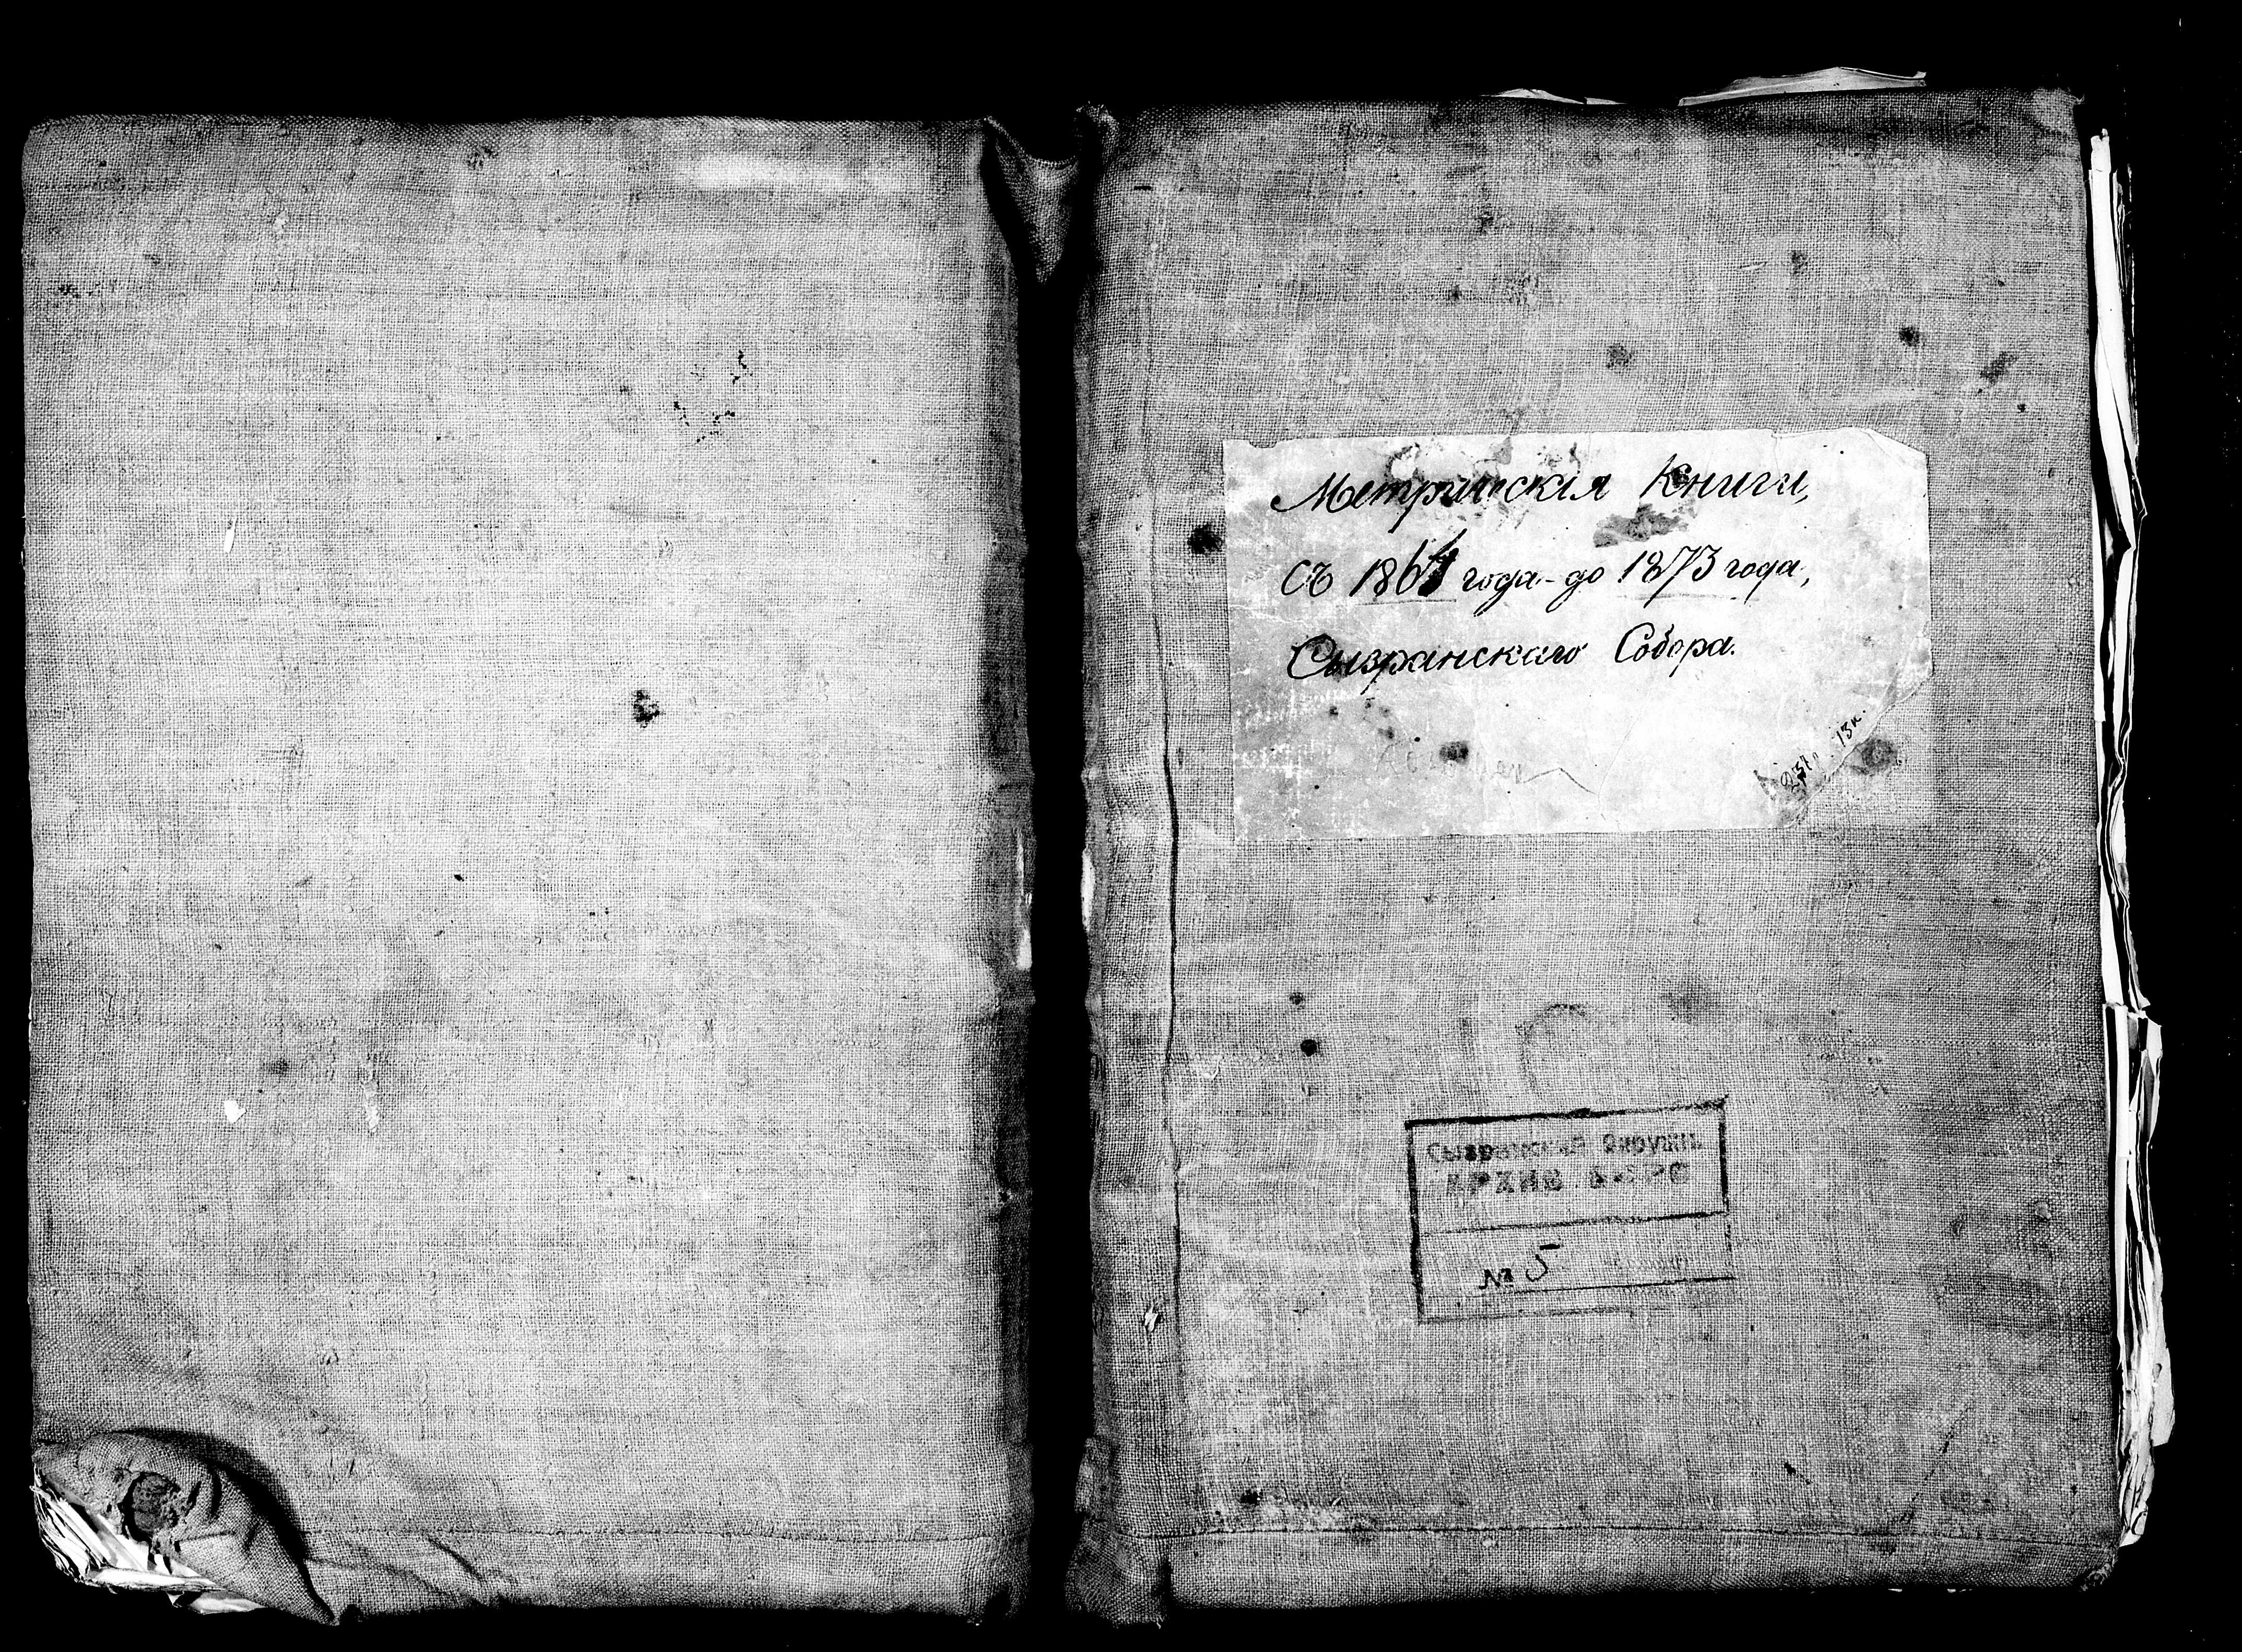 Метрическія Книги,
съ 1864 года - до 1873 года,
Сызранскаго Собора.
13к.
Сызранский Окружн.
АРХИВ
№ 5